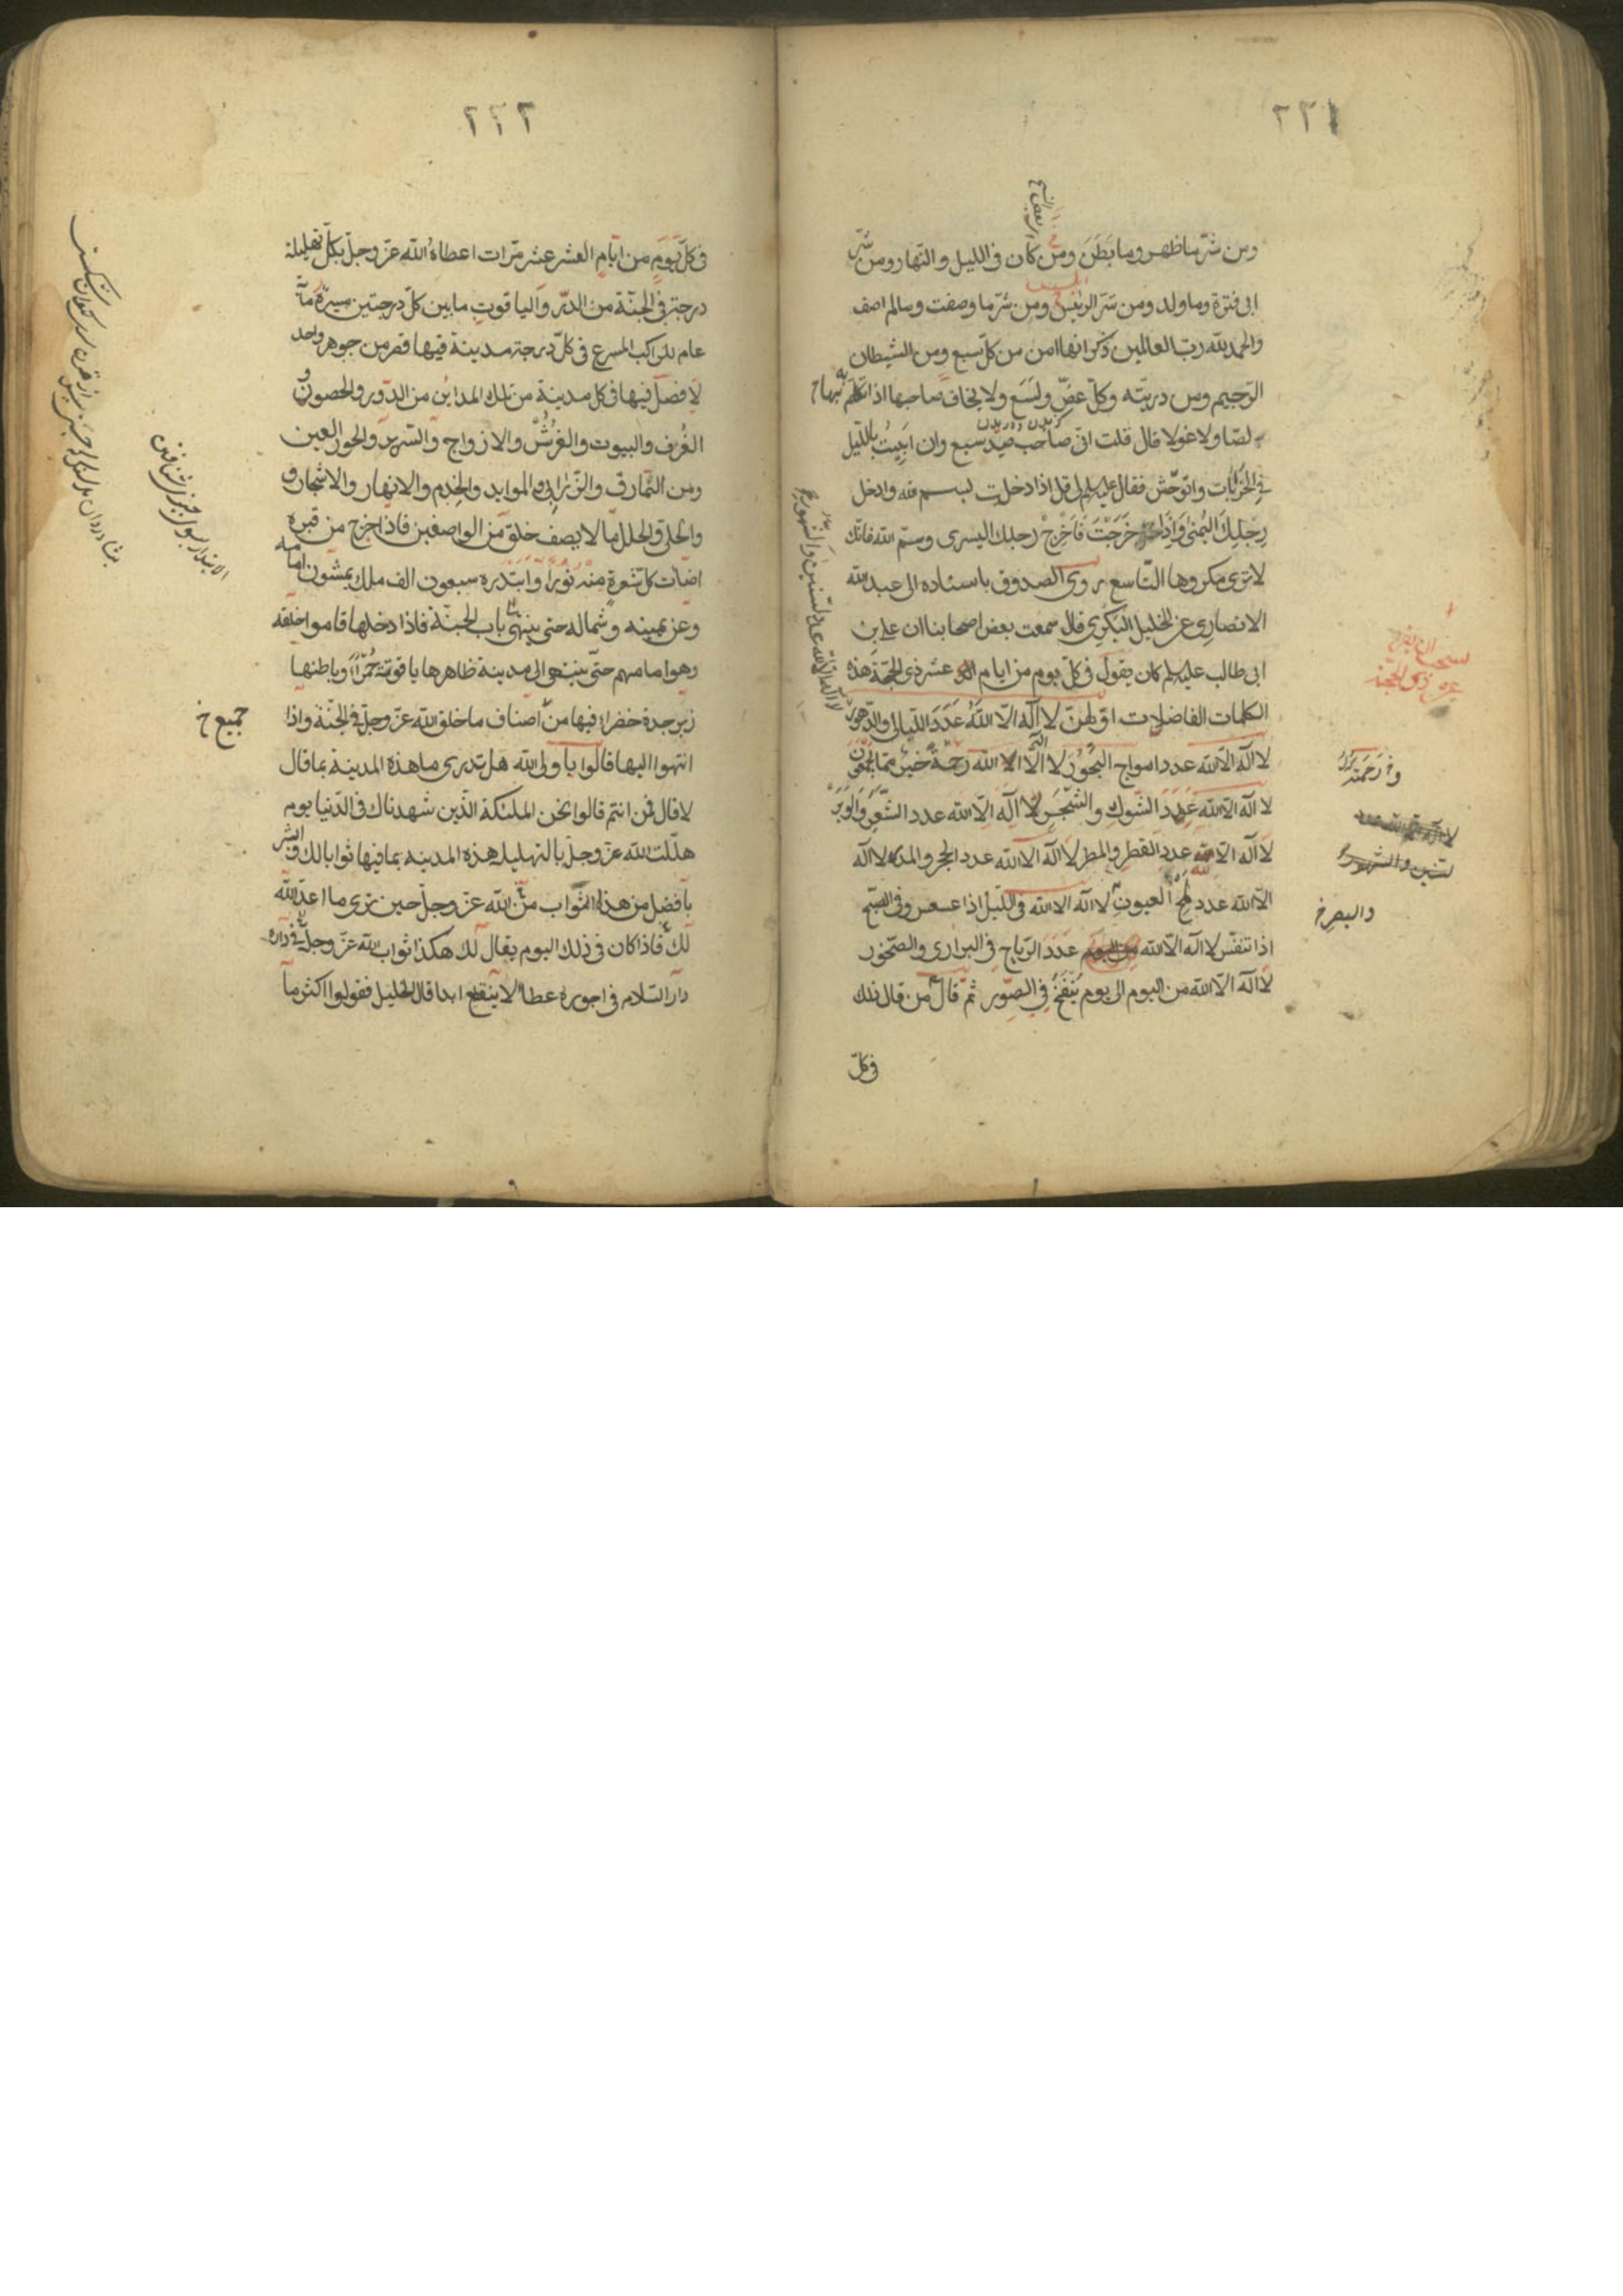 ٢٢١
ومن شرّ ما ظهر وما بطن ومن كان فى الليل والنّهار ومن شرّ
ابى قترة وما ولد ومن شرّ الرئيس ومن شرّ ما وصفت وما لم اصف
والحمد لله ربّ العالمين ذكر انها امن من كلّ سبع ومن الشيطان
الرّجيم ومن ذريته وكلّ عضّ ولسع ولا يخاف صاحبها اذا تكلّم بها
لصّا ولا غولا قال قلت انّى صاحب صيد سبع وان ابيت بالليل
فى الخرابات واتوحّش فقال عليه السلم لى قل اذا دخلت بسم الله وادخل
رجليك اليمنى واذا خرجت فاخرج رجلك اليسرى وسمّ الله فانّك
لا ترى مكروها التّاسع روى الصدوق باسناده الى عبد الله
الانصارى عن الخليل البكرى قال سمعت بعض اصحابنا ان على بن
ابى طالب عليه السلم كان يقول فى كلّ يوم من ايام عشر ذى الحجّة هذه
الكلمات الفاضلات اوّلهنّ لا اله الّا الله عدد الليالى والدّهور
لا اله الّا الله عدد امواج البحور لا اله الا الله رحمة خير ممّا يجمعون
لا اله الّا الله عدد الشّوك والشّجر لا اله الّا الله عدد الشّعر والوبر
لا اله الّا الله عدد القطر والمطر لا اله الّا الله عدد الحجر والمدر لا اله
الّا الله عدد لمح العيون لا اله الا الله فى اللّيل اذا عسعس وفى الصّبح
اذا تنفّس لا اله الّا الله عدد الرّياح فى البرارى والصّخور
لا اله الّا الله من اليوم الى يوم ينفخ فى الصّور ثمّ قال من قال ذلك
فى كلّ
لا اله الا الله عدد السّنين والشّهور
عشر ذى الحجّة
والبصر خ
٢٢٢
فى كلّ يوم من ايّام العشر عشر مرّات اعطاه الله عزّ وجلّ بكلّ تهليلة
درجة فى الجنّة من الدّر والياقوت ما بين كلّ درجتين مسيرة مأة
عام للراكب المسرع فى كلّ درجة مدينة فيها قصر من جوهر واحد
لا فصل فيها فى كل مدينة من تلك المداين من الدّور والحصون و
الغرف والبيوت والفرش والازواج والسّرير والحور العين
ومن النّمارق والزّرابى والموايد والخدم والانهار والاشجار و
والحلى والحلل ما لا يصف خلق من الواصفين فاذا خرج من قبره
اضاءت كل شعرة منه نورا وابتدره سبعون الف ملك يمشون امامه
وعن يمينه وشماله حتى ينتهى الى باب الجنّة فاذا دخلها قاموا خلفه
وهو امامهم حتّى ينتهى الى مدينة ظاهرها ياقوتة حمراء وباطنها
زبرجدة خضراء فيها من اصناف ما خلق الله عزّ وجلّ فى الجنّة واذا
انتهوا اليها قالوا يا ولى الله هل تدرى ما هذه المدينة بما قال
لا قال فمن انتم قالوا نحن الملئكة الّذين شهدناك فى الدّنيا يوم
هلّلت الله عزّ وجلّ بالتهليل هذه المدينه بما فيها ثوابا لك وابشر
بافضل من هذا الثّواب من الله عزّ وجلّ حين ترى ما اعدّ الله
لك فاذا كان فى ذلك اليوم يقال لك هكذا ثواب الله عزّ وجلّ فى داره
دار السّلام فى اجوره عطاء لا ينقطع ابدا قال الخليل فقولوا اكثر ما
جميع خ